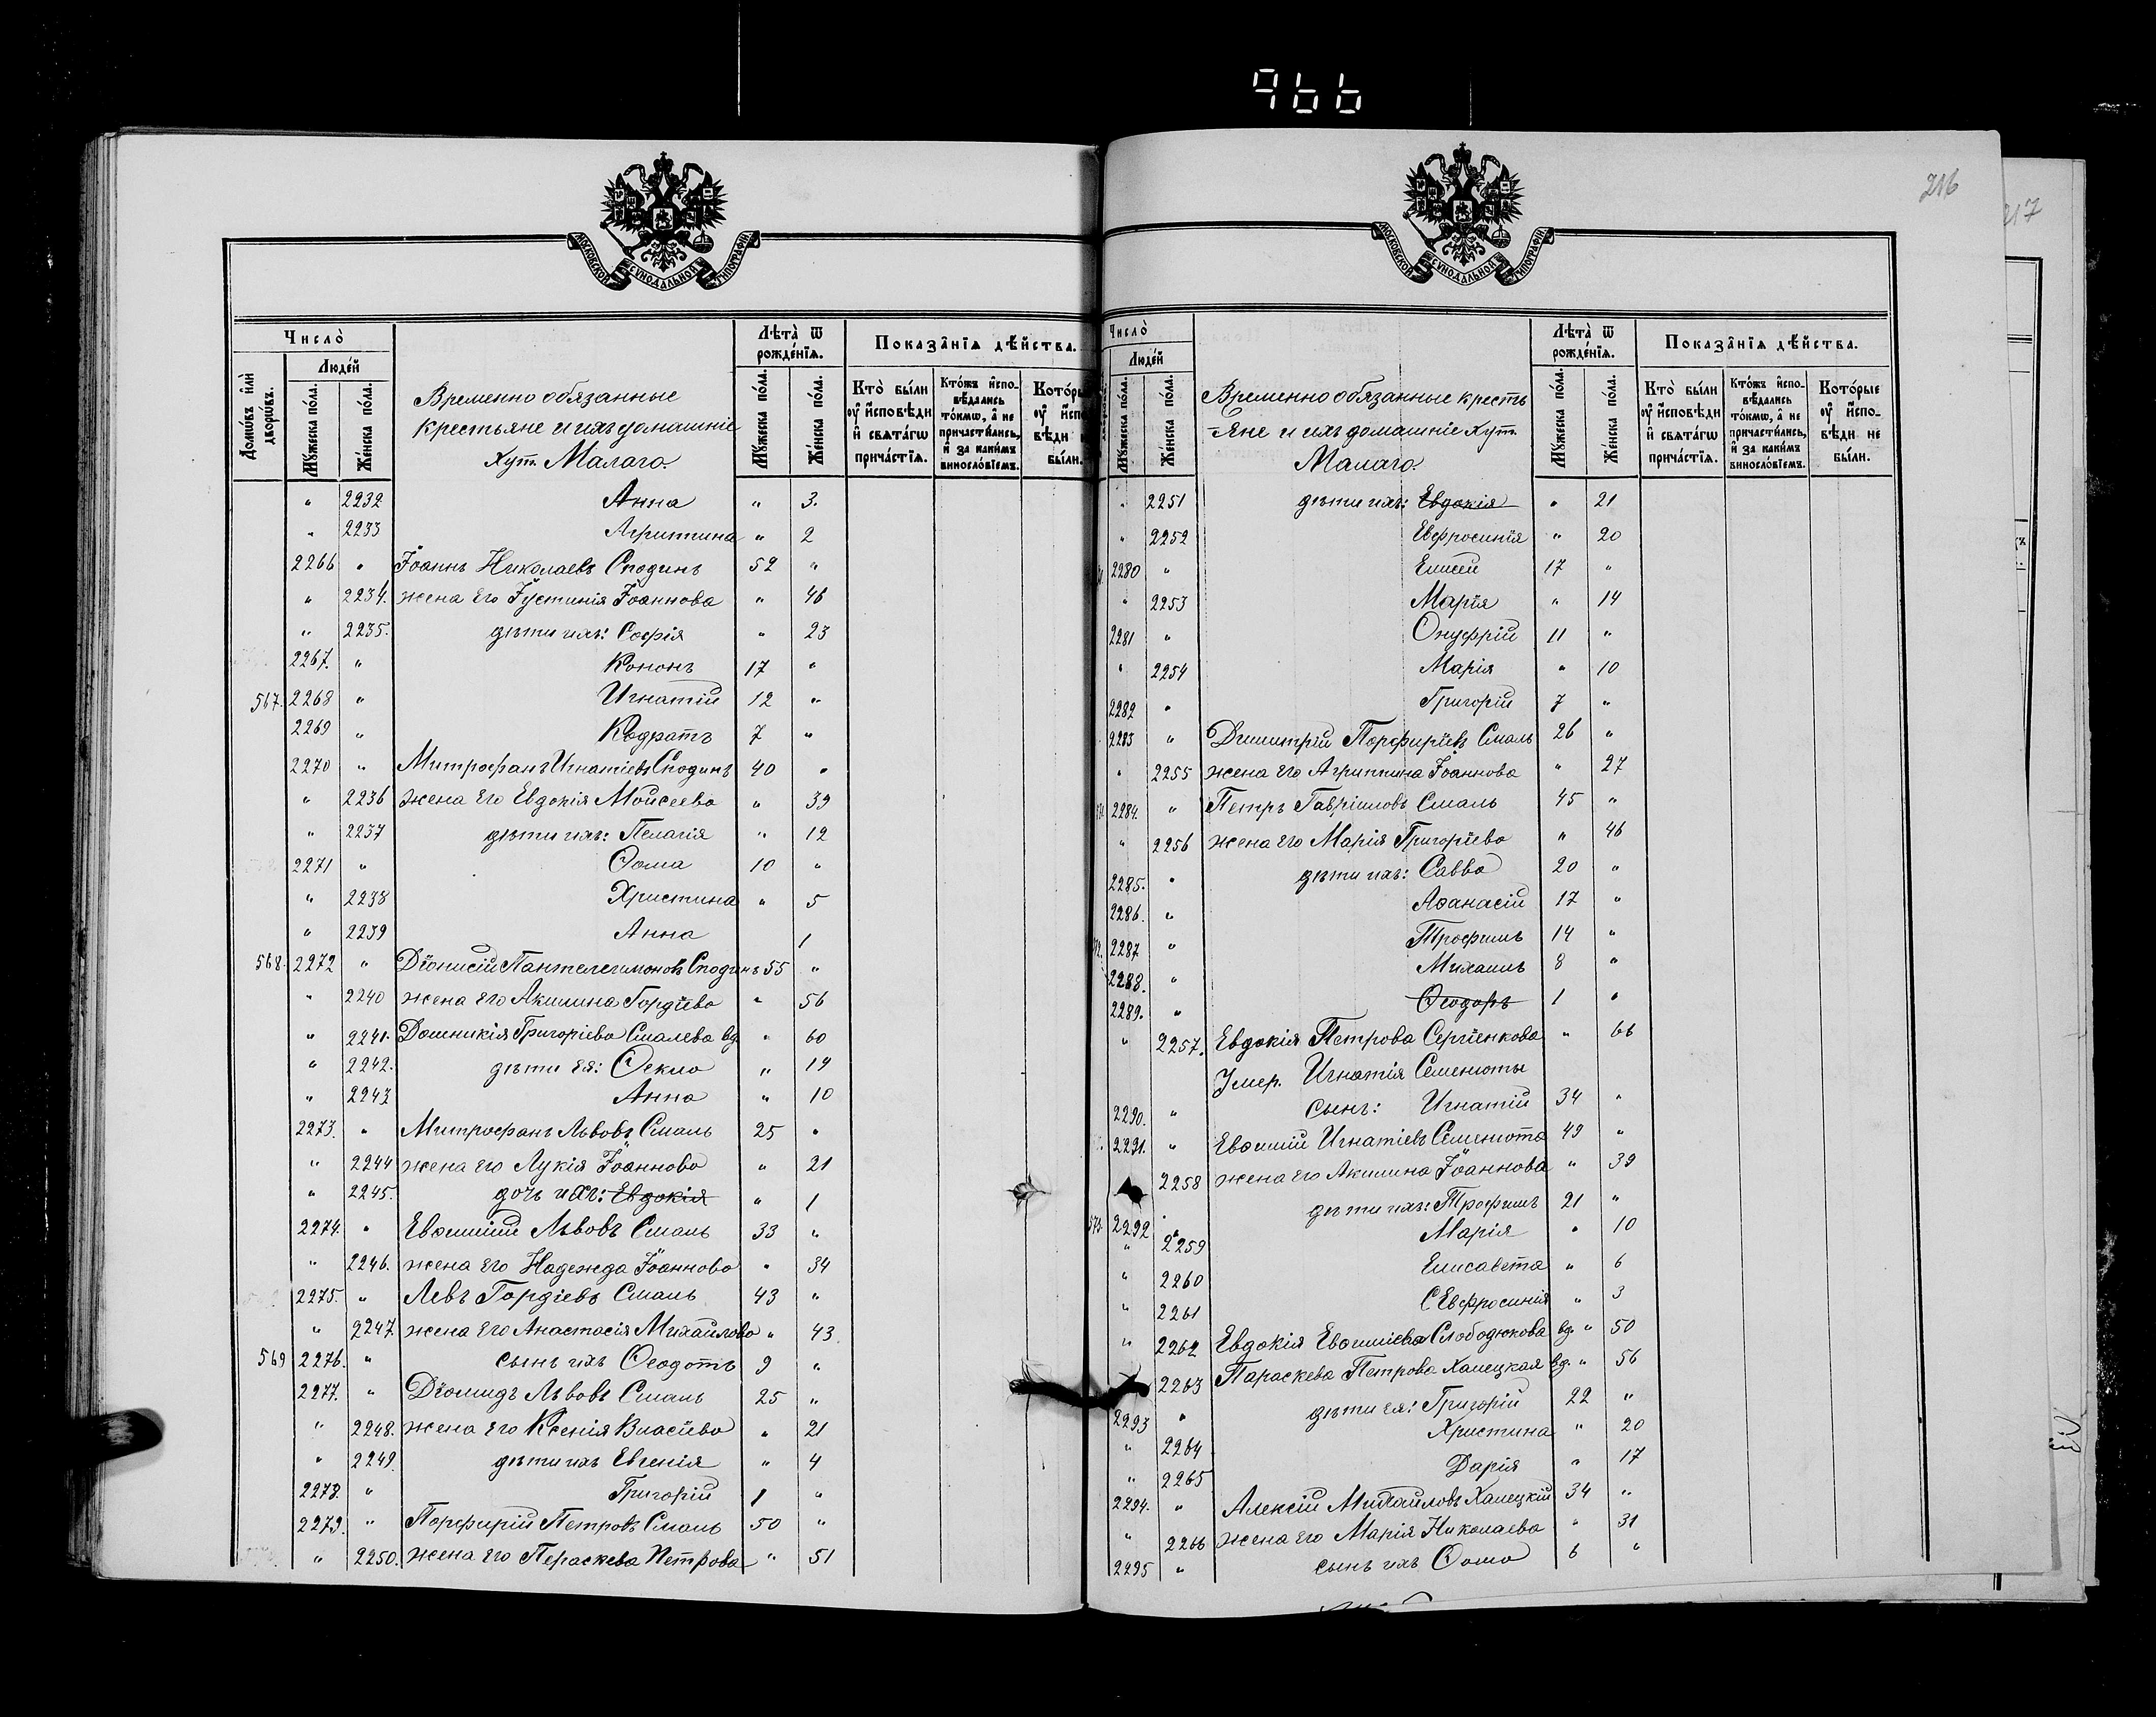 966
216
217
МОСКОВСКОЙ СѴНОДАЛЬНОЙ ТИПОГРАФІИ.
Число̀
Домѡ́въ и҆лѝ дворѡ́въ.
Люде́й
Мꙋ́жеска по́ла.
Же́нска по́ла.
Временно обязанные
крестьяне и ихъ домашніе
Хут. Малаго.
Лѣ́та ѿ рожде́нїѧ.
Мꙋ́жеска по́ла.
Же́нска по́ла.
Показа̑нїѧ дѣ́йства.
Кто̀ бы́ли ᲂу҆ и҆сповѣ́ди и҆ свята́гѡ прича́стїѧ.
Кто́жъ и҆спо-вѣ́дались то́кмѡ, а҆ не причасти́лись, и҆ за каки́мъ винослѡ́вїемъ.
2232 Анна " 3.
" 2233 Агриппина " 2
2266 " Іоаннъ Николаевъ Сподинъ 52 "
" 2234. жена его Іустинія Іоаннова " 46
" 2235. дѣти ихъ: Софія " 23
2267. " Кононъ 17 "
567. 2268 " Игнатій 12 "
2269 " Кодратъ 7 "
2270 " Митрофанъ Игнатіевъ Сподинъ 40 "
" 2236 жена его Евдокія Моисеева " 39
" 2237 дѣти ихъ: Пелагія " 12
2271 " Ѳома 10 "
" 2238 Христина " 5
" 2239 Анна 1
568. 2272 " Діонисій Пантелеимоновъ Сподинъ 55 "
" 2240 жена его Акилина Гордіева " 56
" 2241. Домникія Григоріева Смалева вд. " 60
" 2242. дѣти ея: Ѳекла " 19
" 2243 Анна " 10
2273. " Митрофанъ Львовъ Смаль 25 "
" 2244 жена его Лукія Іоаннова " 21
" 2245. дочь ихъ: Евдокія " 1
2274. " Евѳимій Львовъ Смаль 33 "
" 2246. жена его Надежда Іоаннова " 34
2275. " Левъ Гордіевъ Смаль 43 "
" 2247 жена его Анастасія Михайлова " 43
569 2276. " сынъ ихъ Ѳеодотъ 9 "
2277. " Діомидъ Львовъ Смаль 25 "
" 2248. жена его Ксенія Власіева " 21
" 2249. дѣти ихъ Евгенія " 4
2278. " Григорій 1 "
2279. " Порфирій Петровъ Смаль 50 "
" 2250. жена его Пераскева Петрова " 51
МОСКОВСКОЙ СѴНОДАЛЬНОЙ ТИПОГРАФІИ.
Число̀
Люде́й
Мꙋ́жеска по́ла.
Же́нска по́ла.
Временно обязанные кресть
-яне и ихъ домашніе Хут.
Малаго.
Лѣ́та ѿ рожде́нїѧ.
Мꙋ́жеска по́ла.
Же́нска по́ла.
Показа̑нїѧ дѣ́йства.
Кто̀ бы́ли ᲂу҆ и҆сповѣ́ди и҆ свята́гѡ прича́стїѧ.
Кто́жъ и҆спо-вѣ́дались то́кмѡ, а҆ не причасти́лись, и҆ за каки́мъ винослѡ́вїемъ.
Кото́рые ᲂу҆ и҆спо-вѣ́ди не бы́ли.
" 2251 дѣти ихъ: Евдокія " 21
" 2252 Евфросинія " 20
2280 " Елисей 17 "
" 2253 Марія " 14
2281 " Онуфрій 11 "
" 2254 Марія " 10
2282 " Григорій 7 "
2283 " Димитрій Порфиріевъ Смаль 26 "
" 2255 жена его Агриппина Іоаннова " 27
2284. " Петръ Гавріиловъ Смаль 45 "
" 2256 жена его Марія Григоріева " 46
2285. " дѣти ихъ: Савва 20 "
2286. " Аѳанасій 17 "
2287 " Трофимъ 14 "
2288. " Михаилъ 8 "
2289. " Ѳеодоръ 1 "
" 2257. Евдокія Петрова Сергіенкова " 66
Умер. Игнатія Семенюты
2290. " сынъ: Игнатій 34 "
2291. " Евѳимій Игнатіевъ Семенюта 49 "
2258 жена его Акилина Іоаннова " 39
573. 2292 " дѣти ихъ: Трофимъ 21 "
" 2259 Марія " 10
" 2260 Елисавета " 6
" 2261 Евфросинія " 3
" 2262 Евдокія Евѳиміева Слободюкова вд. " 50
2263 Параскева Петрова Халецкая вд. " 56
2293 " дѣти ея: Григорій 22 "
" 2264 Христина " 20
" 2265 Дарія " 17
2294. " Алексій Михайловъ Халецкій 34 "
" 2266 жена его Марія Николаева " 31
2295 " сынъ ихъ Ѳома 6 "